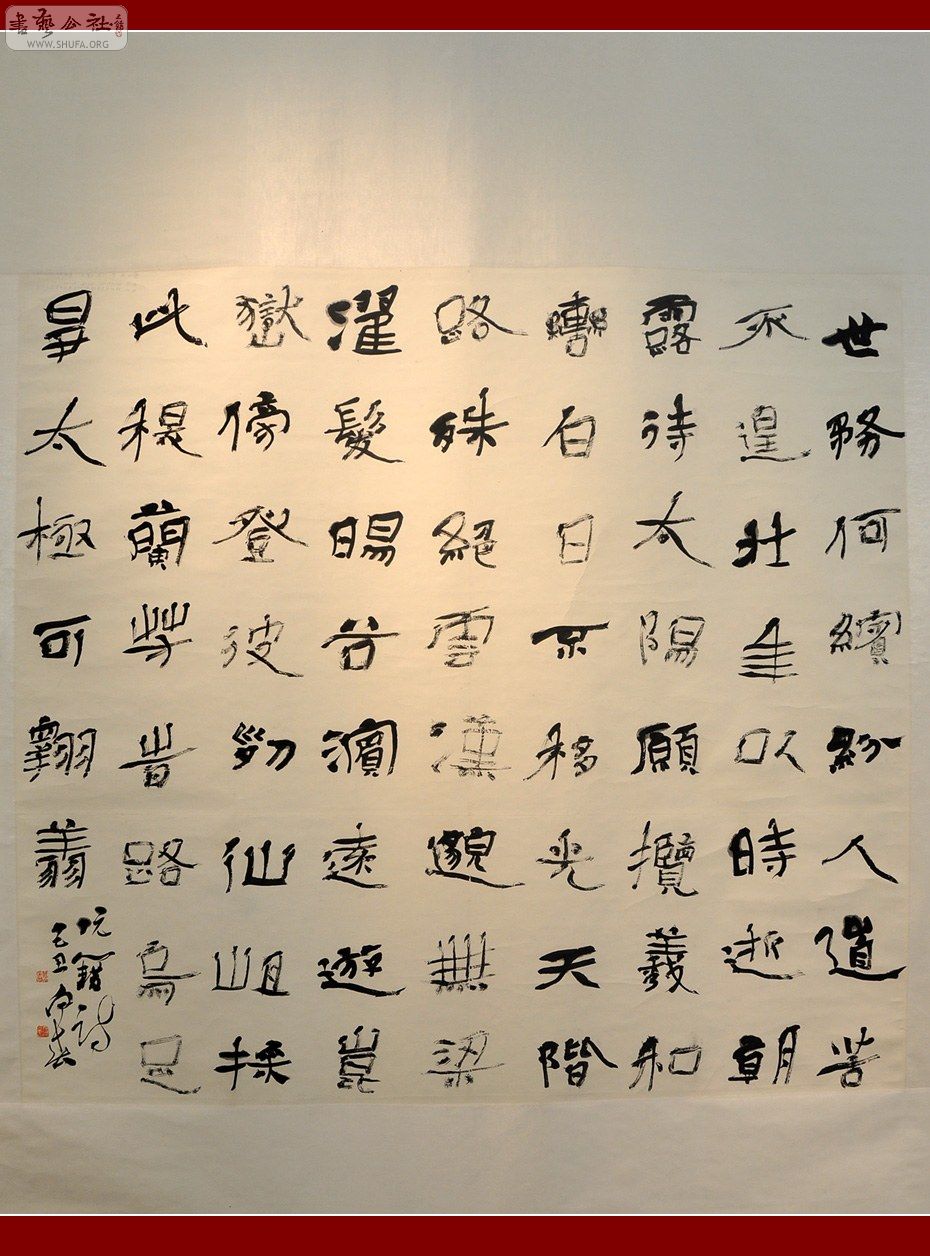 世務何繽紛人道苦
不遑壯年以時逝朝
露待太陽願攬羲和
轡白日不移光天階
路殊絕雲漢邈無梁
濯髮暘谷濱遠遊崑
嶽傍登彼列仙岨採
此秋蘭芳旹路烏足
爭太極可翱翔
阮籍詩
己丑
書藝公社
WWW.SHUFA.ORG